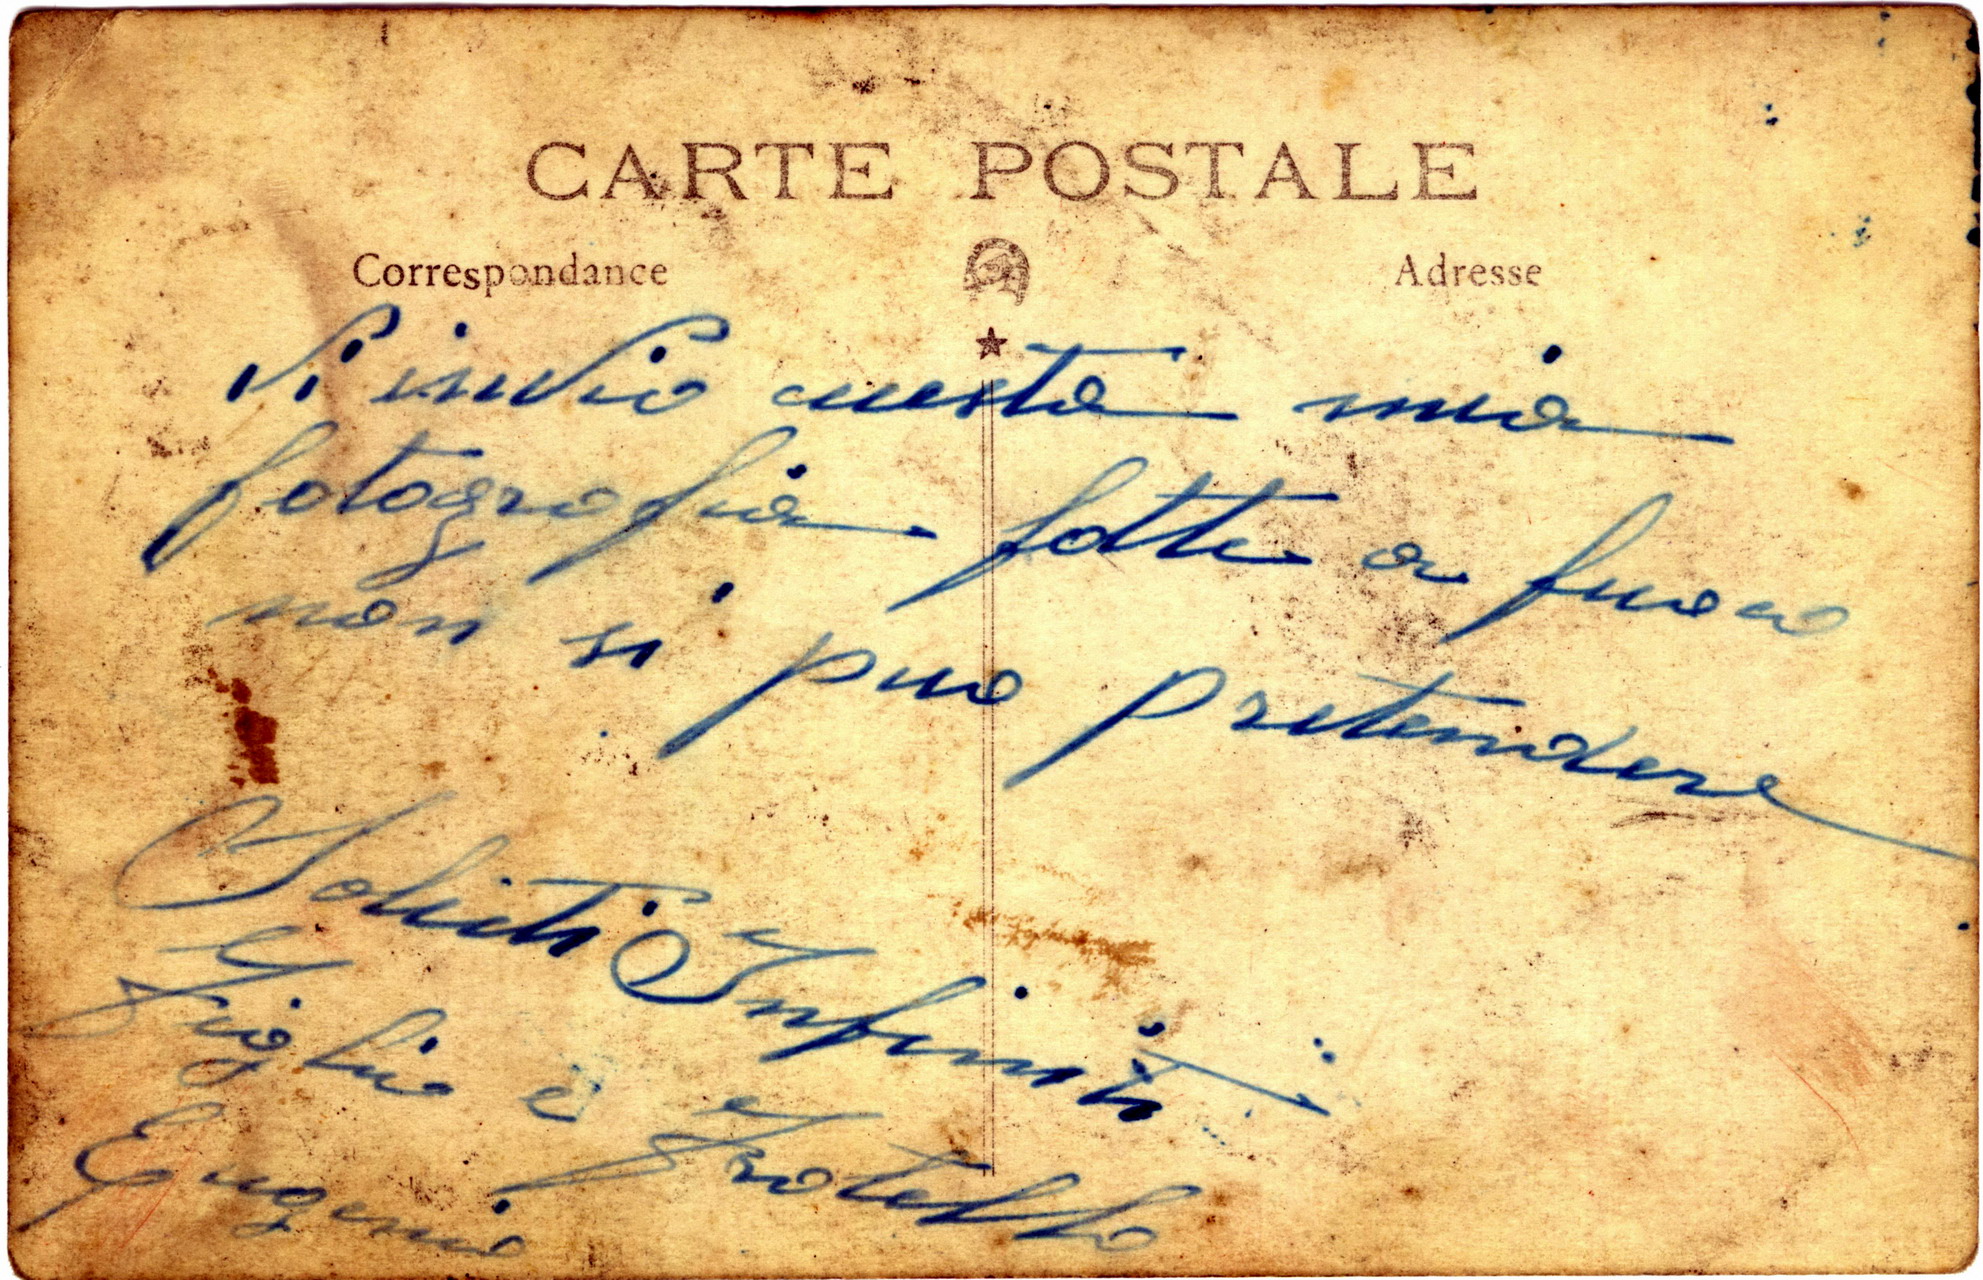 CARTE POSTALE
Correspondance
Adresse
Vi invio cuesta mia
fotografia fatta a fuoco
non si puo pretendere
Saluti Infiniti
Figlio e Fratello
Eugenio